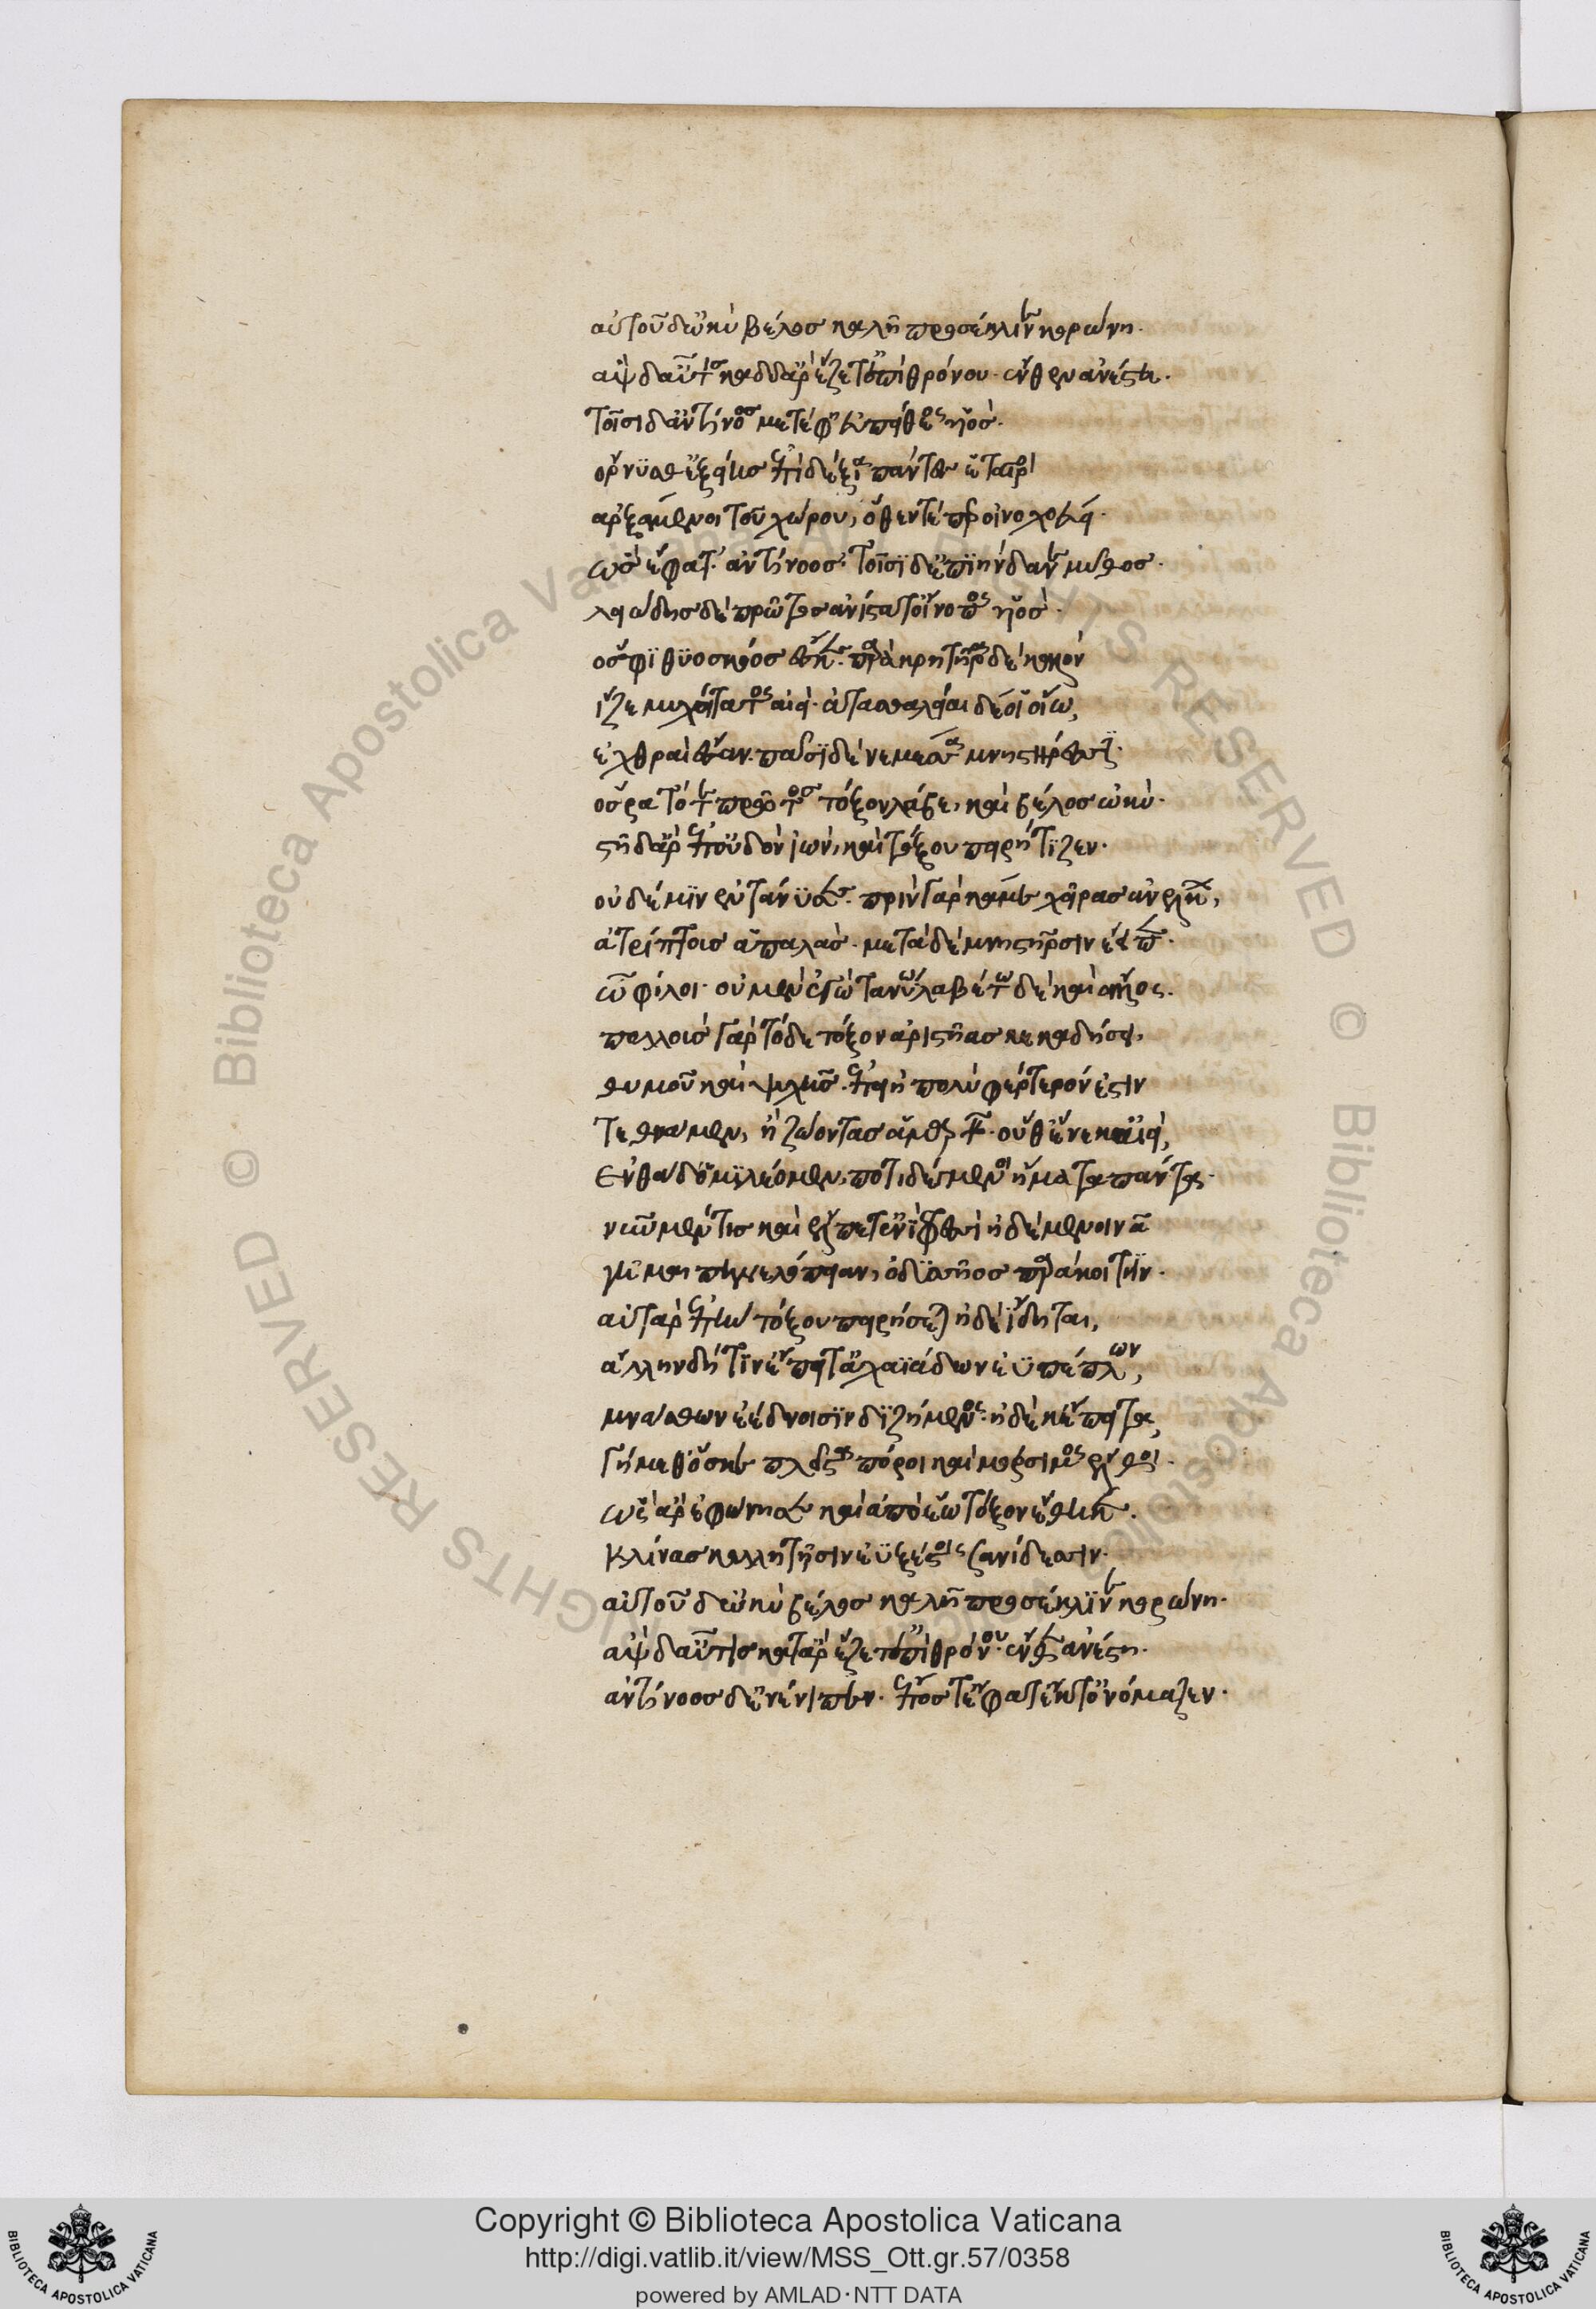 αὐτοῦ δ' ὠκὺ βέλος καλῇ προσέκλινε κορώνῃ.
ἂψ δ' αὖτις κατ' ἄρ' ἕζετ' ἐπὶ θρόνου ἔνθεν ἀνέστη.
τοῖσι δ' Ἀντίνοος μετέφη Εὐπείθεος υἱός.
ὄρνυσθ' ἑξείης ἐπιδέξια πάντες ἑταῖροι
ἀρξάμενοι τοῦ χώρου, ὅθεν τέ περ οἰνοχοεύει.
ὣς ἔφατ' Ἀντίνοος· τοῖσι δ' ἐπιήνδανε μῦθος.
Λειώδης δὲ πρῶτος ἀνίστατο Οἴνοπος υἱός.
ὅ σφι θυοσκόος ἔσκε. παρὰ κρητῆρα δὲ καλὸν
ἷζε μυχοίτατος αἰεί. ἀτασθαλίαι δέ οἱ οἴῳ,
ἐχθραὶ ἔσαν. πᾶσι δὲ νεμέσσα μνηστήρεσσι.
ὅς ῥα τότε πρῶτος τόξον λάβε, καὶ βέλος ὠκύ.
στῆ δ' ἄρ' ἐπ' οὐδὸν ἰών, καὶ τόξου πειρήτιζεν.
οὐδέ μιν ἐντάνυσε. πρὶν γὰρ κάμε χεῖρας ἀνέλκων,
ἀτρίπτους ἁπαλάς. μετὰ δὲ μνηστῆρσιν ἔειπε.
ὦ φίλοι. οὐ μὲν ἐγὼ τανύω λαβέτω δὲ καὶ ἄλλος.
πολλοὺς γὰρ τόδε τόξον ἀριστῆας κεκαδήσει,
θυμοῦ καὶ ψυχῆς. ἐπειὴ πολὺ φέρτερόν ἐστιν
τεθνάμεν, ἢ ζώοντας ἁμαρτεῖν. οὗ θ' ἕνεκ' αἰεί,
ἐνθάδ' ὁμιλέομεν, ποτιδέγμενοι ἤματα πάντα.
νῦν μέν τις καὶ ἔλπετ' ἐνὶ φρεσὶ ἠδὲ μενοινᾷ
γῆμαι Πηνελόπειαν, Ὀδυσσῆος παράκοιτιν.
αὐτὰρ ἐπὴν τόξου πειρήσεται ἠδὲ ἴδηται,
ἄλλην δή τιν' ἔπειτ' Ἀχαιϊάδων εὐπέπλων,
μνάσθω ἐέδνοισιν διζήμενος. ἡ δέ κ' ἔπειτα,
γήμαιθ' ὅς κε πλεῖστα πόροι καὶ μόρσιμος ἔλθοι.
ὣς ἄρ' ἐφώνησεν καὶ ἀπὸ ἕο τόξον ἔθηκεν.
κλίνας κολλητῇσιν ἐϋξέστοις σανίδεσσιν.
αὐτοῦ δ' ὠκὺ βέλος καλῇ προσέκλινε κορώνῃ.
ἂψ δ' αὖτις κατ' ἄρ' ἕζετ' ἐπὶ θρόνου ἔνθεν ἀνέστη.
Ἀντίνοος δ' ἐνένιπεν. ἔπος τ' ἔφατ' ἔκ τ' ὀνόμαζεν.
Copyright © Biblioteca Apostolica Vaticana
http://digi.vatlib.it/view/MSS_Ott.gr.57/0358
powered by AMLAD·NTT DATA